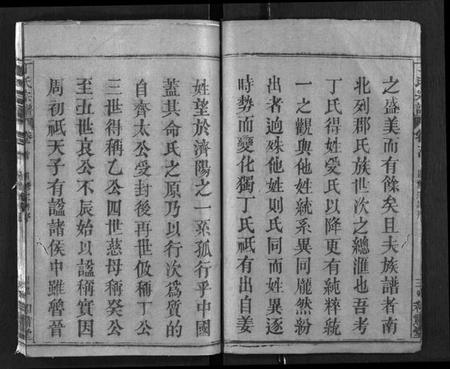 之盛美而有餘矣且夫族譜者南
北列郡氏族世次之總滙也吾考
丁氏得姓受氏以降更有純粹統
一之觀與他姓統系異同龎然紛
出者逈殊他姓則氏同而姓異逐
時勢而變化獨丁氏祇有出自姜
姓望於濟陽之一系孤行乎中國
蓋其命氏之原乃以行次為質的
自齊太公受封後再世伋稱丁公
三世得稱乙公四世慈母稱癸公
至五世哀公不辰始以謚稱實因
周初祇天子有謚諸侯中雖魯晉